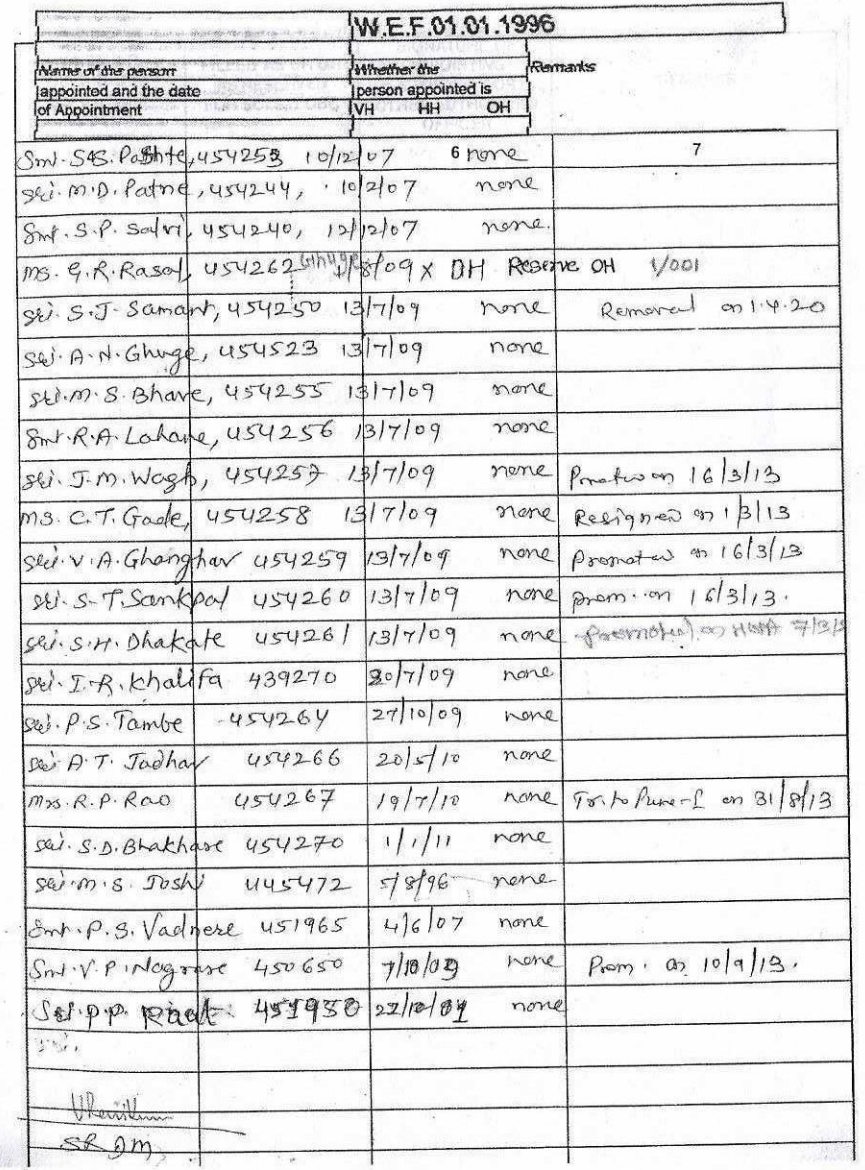 W.E.F.01.01.1996
Name of the person Whether the Remarks
appointed and the date person appointed is
of Appointment VH HH OH
Smt. S.S. 10/12/07 6 none 7
Sri. M.D. Patne, 454244, 10/2/07 none
Smt. S.P. Salvi, 454240, 12/12/07 none.
Ms. G.R. Rasal, 454262 /8/09 X OH Reserve OH 1/001
Sri. S.J. Samant, 454250 13/7/09 none Removal on 1.4.20
Sri. A.N. Ghuge, 454523 13/7/09 none
Sri. M.S. Bhave, 454255 13/7/09 none
Smt. R.A. Lahane, 454256 13/7/09 none
Sri. J.M. Wagh, 454257 13/7/09 none on 16/3/13
Ms. C.T. Gade, 454258 13/7/09 none Resigned on 1/3/13
Sri. V.A. Ghanghav 454259 13/7/09 none Promoted on 16/3/13
Sri. S.T. Sankpal 454260 13/7/09 none prom. on 16/3/13.
Sri. S.H. Dhakate 454261 13/7/09 none Promoted on
Sri. I.R. Khalifa 439270 20/7/09 none
Sri. P.S. Tambe 454264 27/10/09 none
Sri A.T. Jadhav 454266 20/5/10 none
Mrs. R.P. Rao 454267 19/7/10 none Tr. to Pune-I on 31/8/13
Sri. S.D. Bhakhare 454270 1/1/11 none
Sri. M.S. Joshi 445472 5/8/96 none
Smt. P.S. Vadnere 451965 4/6/07 none
Smt. V.P. Nagrare 450650 none Prom. on 10/9/13.
Sri. P.P. none
SR DM